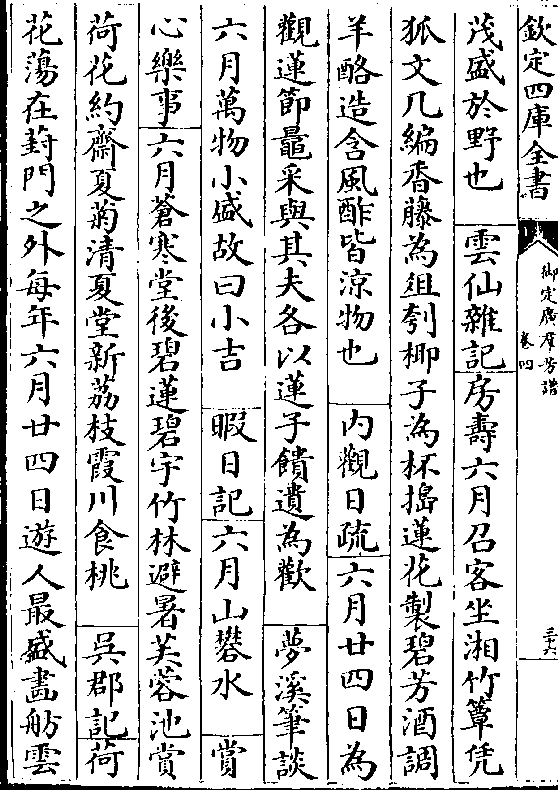 欽定四庫全書
御定廣羣芳譜
卷四
三十六
茂盛於野也 雲仙雜記房壽六月召客坐湘竹簟凭
狐文几編香藤為俎刳椰子為杯搗蓮花製碧芳酒調
羊酪造含風鮓皆涼物也 内觀日疏六月廿四日為
觀蓮節鼂采與其夫各以蓮子饋遺為歡 夢溪筆談
六月萬物小盛故曰小吉 暇日記六月山礬水 賞
心樂事六月蒼寒堂後碧蓮碧宇竹林避暑芙蓉池賞
荷花約齋夏菊清夏堂新荔枝霞川食桃 吳郡記荷
花蕩在葑門之外每年六月廿四日遊人最盛畫舫雲